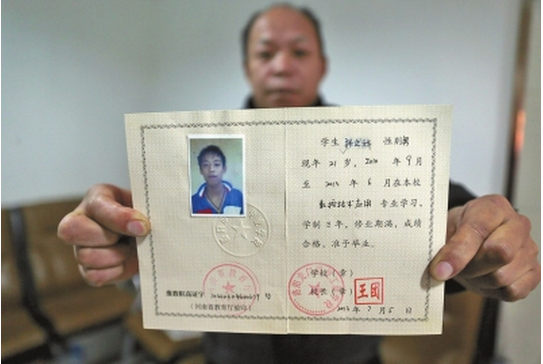 学生 性别男
现年21岁，2010年9月
至2013年6月在本校
数控技术应用专业学习，
学制3年，修业期满，成绩
合格，准予毕业。
学校（章）
校长（章） 王团
2013年7月5日
豫教职高证字 号
（河南省教育厅验印）